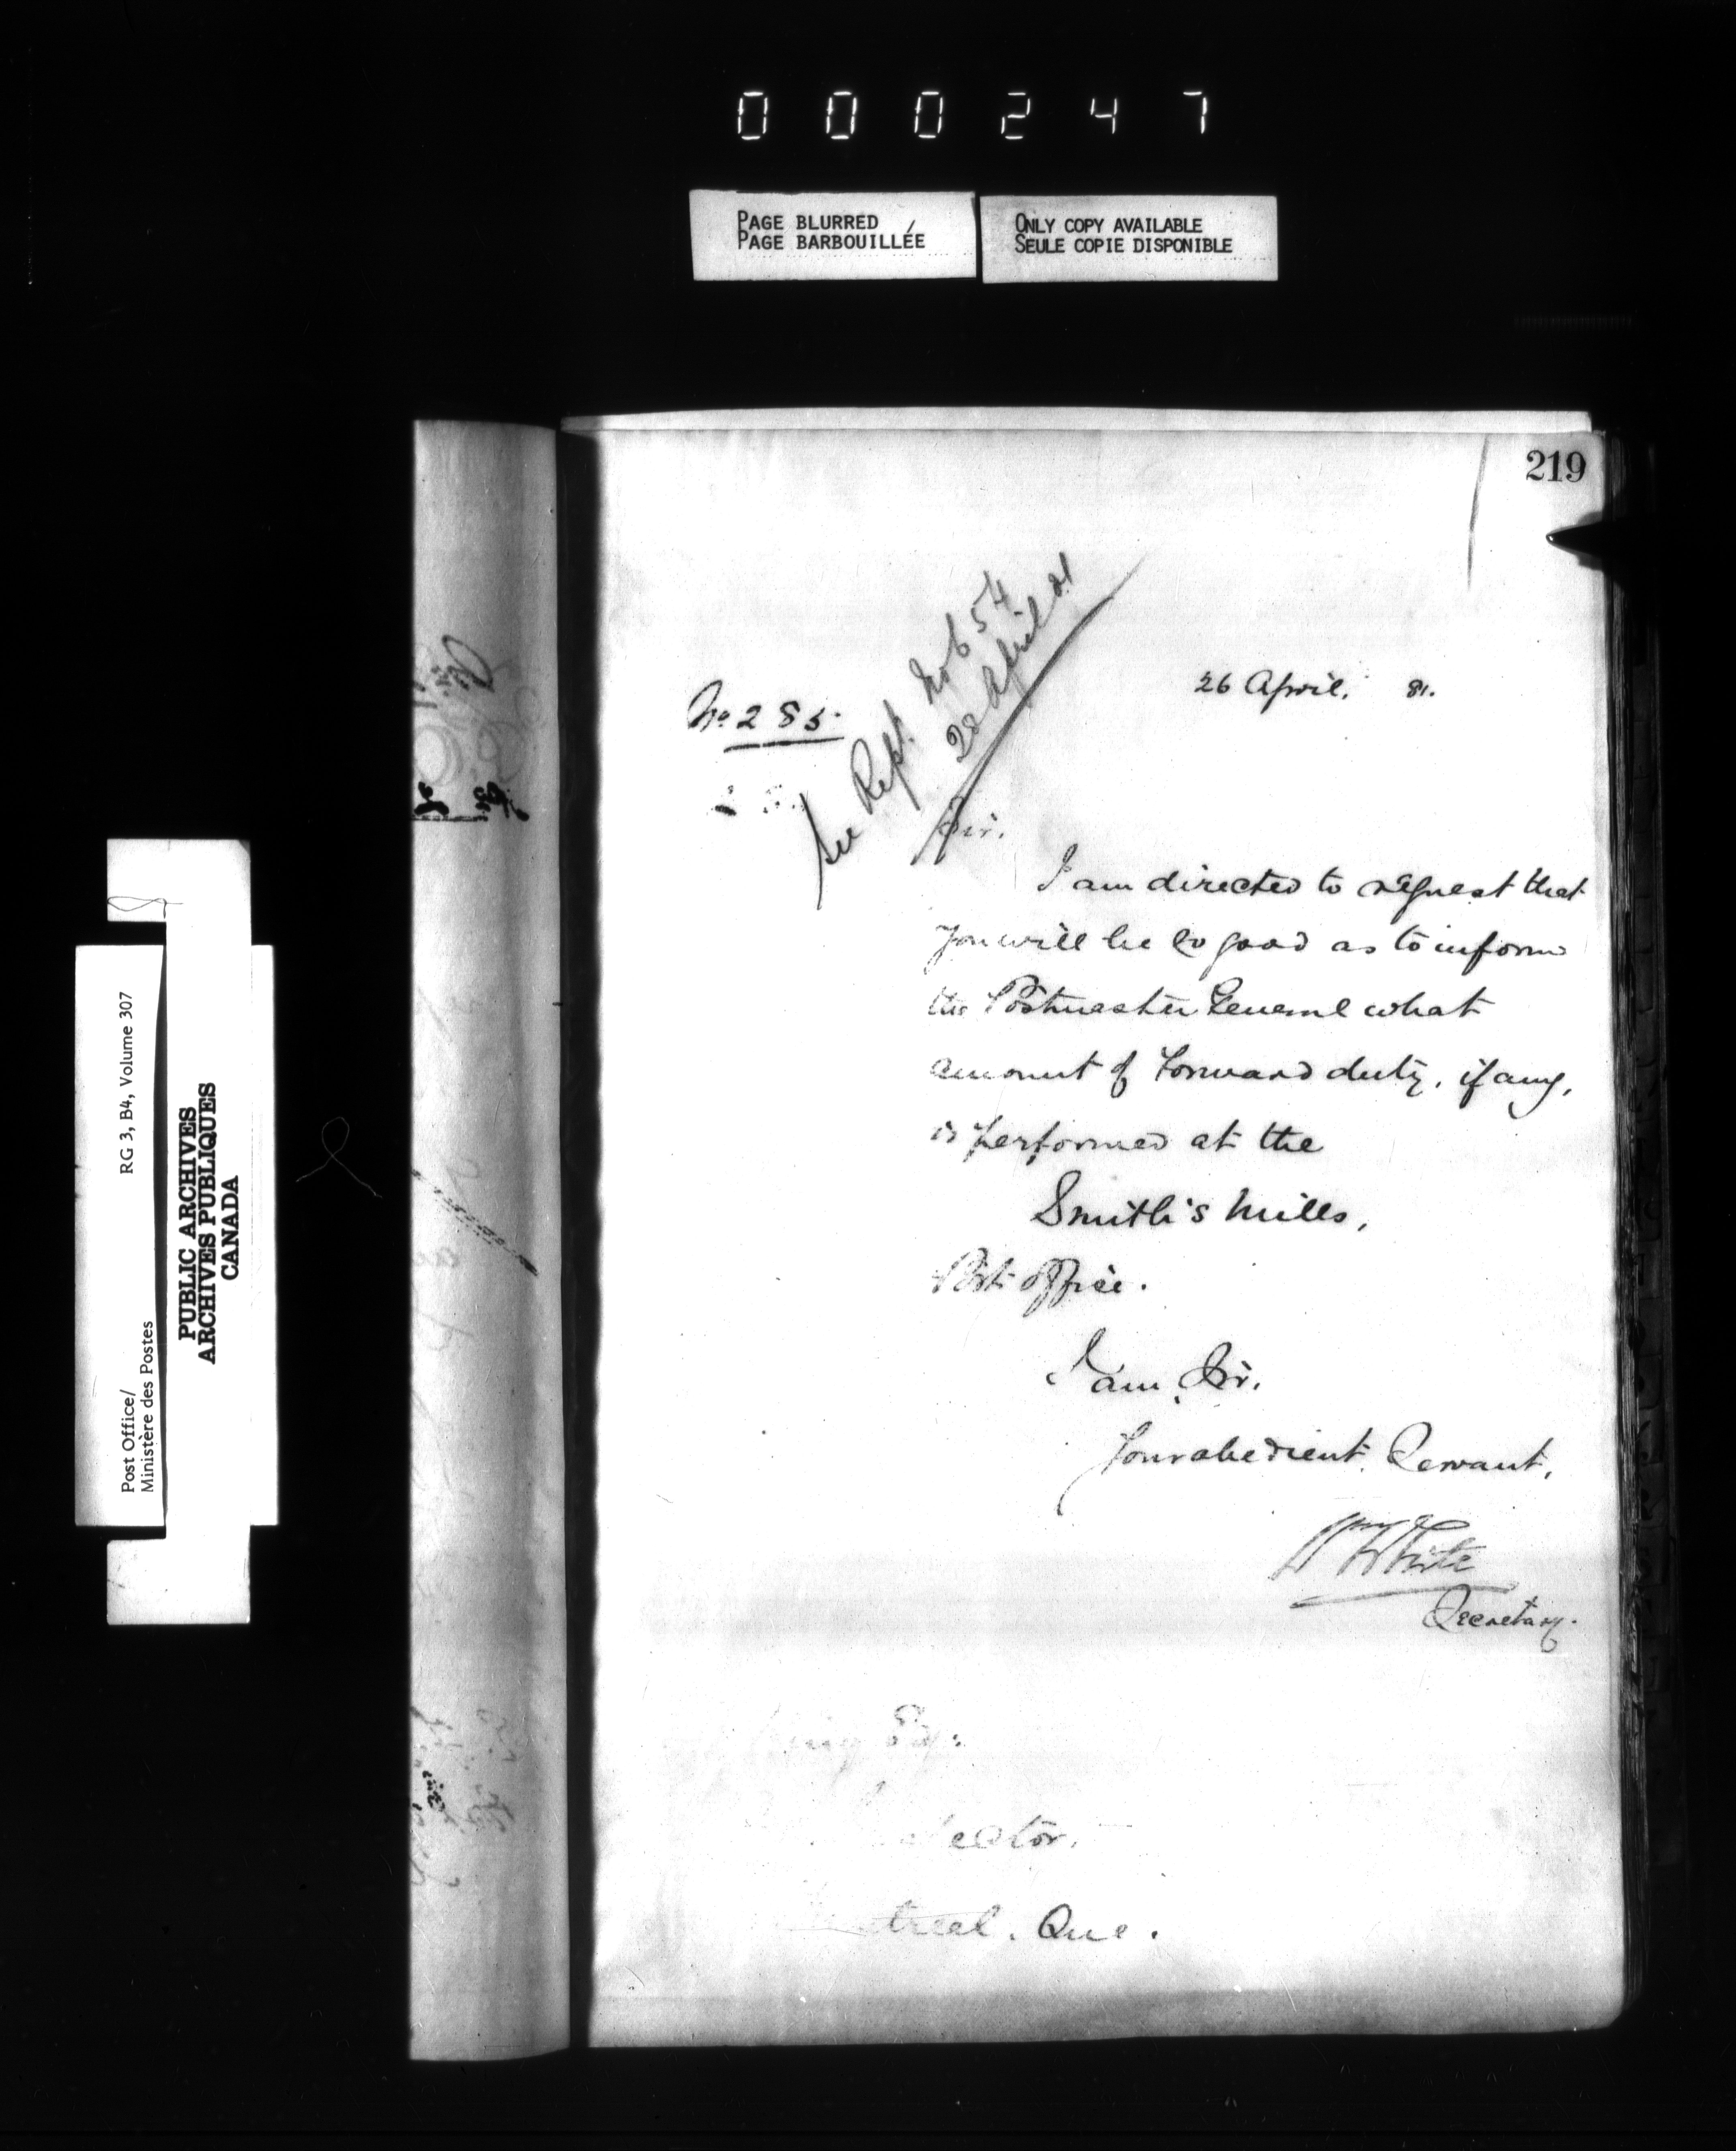 000247
PAGE BLURRED
PAGE BARBOUILLÉE
ONLY COPY AVAILABLE
SEULE COPIE DISPONIBLE
219
See Rept. No 654
28 April 81
26 April. 81.
No. 285.
Sir.
I am directed to request that
you will be so good as to inform
the Postmaster General what
amount of Forward duty, if any,
is performed at the
Smith's Mills,
Post office.
I am, Sir.
Your obedient Servant,
Wm White
Secretary.
Esq:
Montreal. Que.
Post Office/
Ministère des Postes
RG 3, B4, Volume 307
PUBLIC ARCHIVES
ARCHIVES PUBLIQUES
CANADA